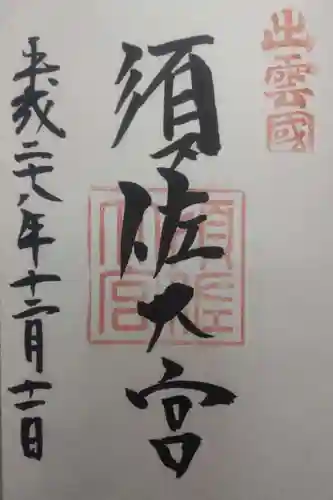 出雲國
須佐大宮
平成二十八年十二月十一日
須佐
大宮